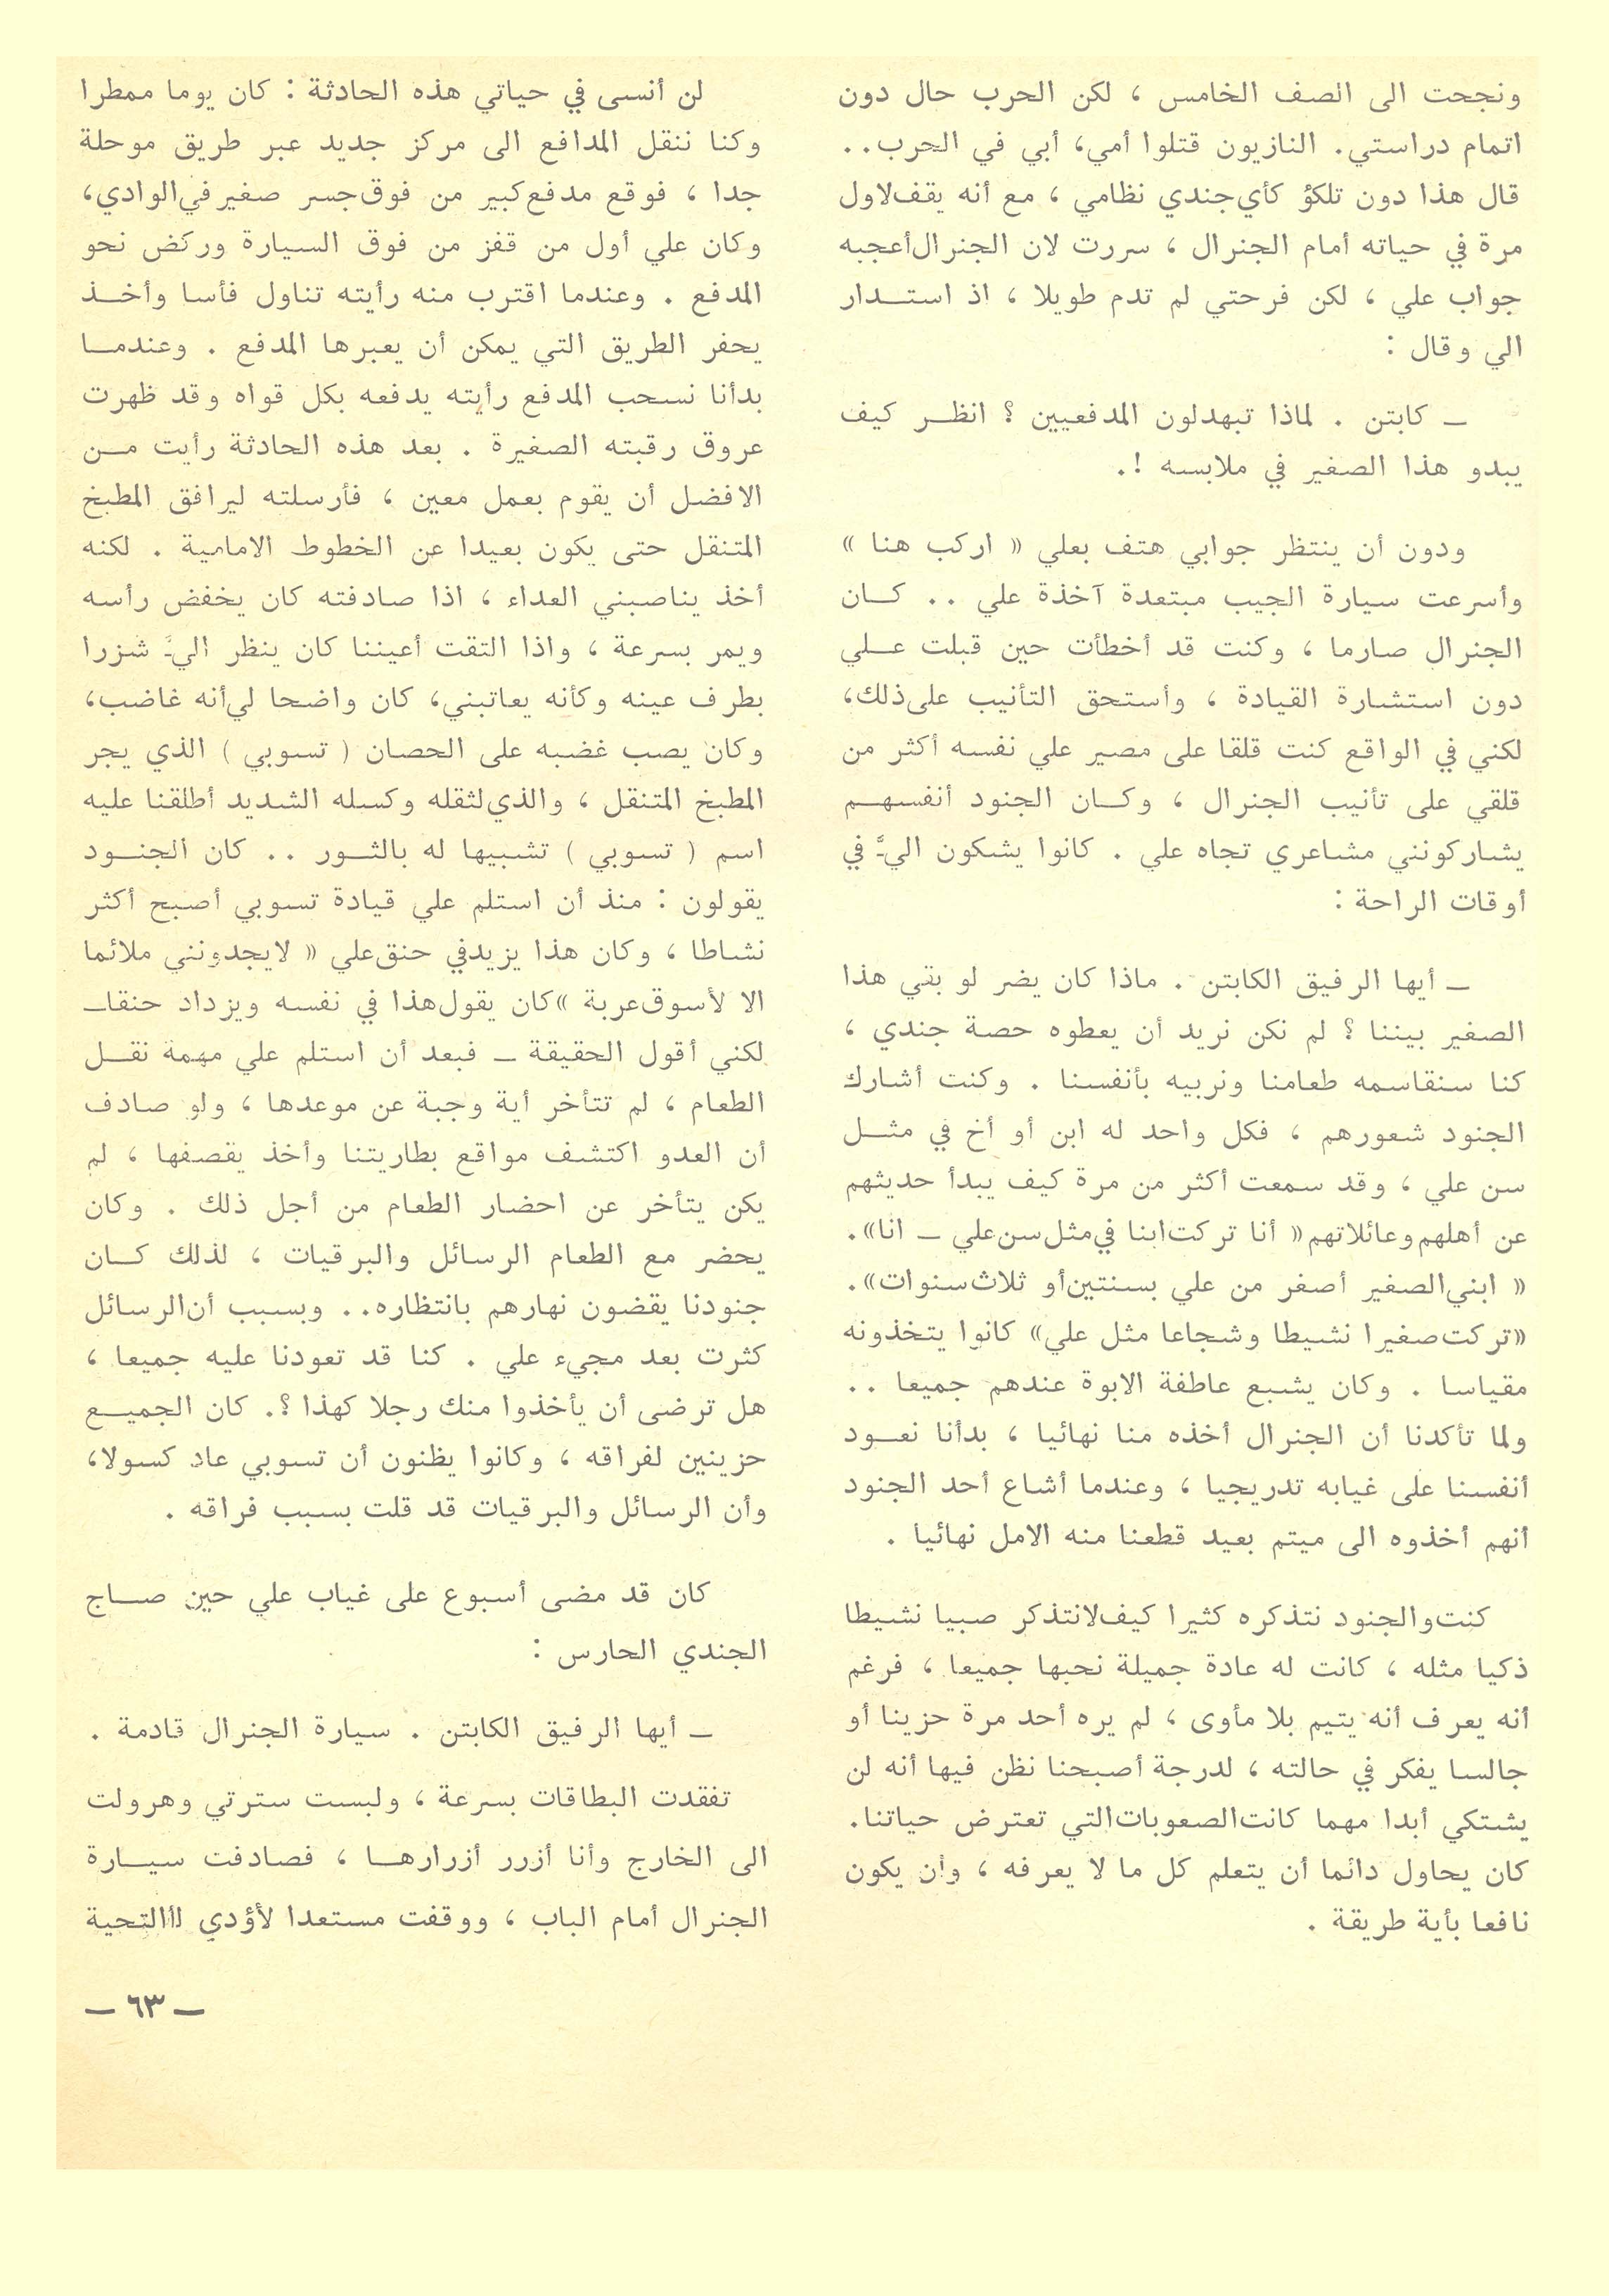 ونجحت الى الصف الخامس ، لكن الحرب حال دون
اتمام دراستي. النازيون قتلوا أمي، أبي في الحرب..
قال هذا دون تلكؤ كأي جندي نظامي ، مع أنه يقف لاول
مرة في حياته أمام الجنرال ، سررت لان الجنرال أعجبه
جواب علي ، لكن فرحتي لم تدم طويلا ، اذ استدار
الي وقال :
ـ كابتن . لماذا تبهدلون المدفعيين ؟ انظر كيف
يبدو هذا الصغير في ملابسه !.
ودون أن ينتظر جوابي هتف بعلي « اركب هنا »
وأسرعت سيارة الجيب مبتعدة آخذة علي .. كان
الجنرال صارما ، وكنت قد أخطأت حين قبلت علي
دون استشارة القيادة ، وأستحق التأنيب على ذلك،
لكني في الواقع كنت قلقا على مصير علي نفسه أكثر من
قلقي على تأنيب الجنرال ، وكان الجنود أنفسهم
يشاركونني مشاعري تجاه علي . كانوا يشكون اليَّ في
أوقات الراحة :
ـ أيها الرفيق الكابتن . ماذا كان يضر لو بقي هذا
الصغير بيننا ؟ لم نكن نريد أن يعطوه حصة جندي ،
كنا سنقاسمه طعامنا ونربيه بأنفسنا . وكنت أشارك
الجنود شعورهم ، فكل واحد له ابن أو أخ في مثل
سن علي ، وقد سمعت أكثر من مرة كيف يبدأ حديثهم
عن أهلهم وعائلاتهم « أنا تركت ابنا في مثل سن علي ـ انا».
« ابني الصغير أصغر من علي بسنتين أو ثلاث سنوات».
«تركت صغيرا نشيطا وشجاعا مثل علي» كانوا يتخذونه
مقياسا . وكان يشبع عاطفة الابوة عندهم جميعا ..
ولما تأكدنا أن الجنرال أخذه منا نهائيا ، بدأنا نعود
أنفسنا على غيابه تدريجيا ، وعندما أشاع أحد الجنود
أنهم أخذوه الى ميتم بعيد قطعنا منه الامل نهائيا .
كنت والجنود نتذكره كثيرا كيف لانتذكر صبيا نشيطا
ذكيا مثله ، كانت له عادة جميلة نحبها جميعا ، فرغم
أنه يعرف أنه يتيم بلا مأوى ، لم يره أحد مرة حزينا أو
جالسا يفكر في حالته ، لدرجة أصبحنا نظن فيها أنه لن
يشتكي أبدا مهما كانت الصعوبات التي تعترض حياتنا.
كان يحاول دائما أن يتعلم كل ما لا يعرفه ، وأن يكون
نافعا بأية طريقة .
لن أنسى في حياتي هذه الحادثة : كان يوما ممطرا
وكنا ننقل المدافع الى مركز جديد عبر طريق موحلة
جدا ، فوقع مدفع كبير من فوق جسر صغير في الوادي،
وكان علي أول من قفز من فوق السيارة وركض نحو
المدفع . وعندما اقترب منه رأيته تناول فأسا وأخذ
يحفر الطريق التي يمكن أن يعبرها المدفع . وعندما
بدأنا نسحب المدفع رأيته يدفعه بكل قواه وقد ظهرت
عروق رقبته الصغيرة . بعد هذه الحادثة رأيت من
الافضل أن يقوم بعمل معين ، فأرسلته ليرافق المطبخ
المتنقل حتى يكون بعيدا عن الخطوط الامامية . لكنه
أخذ يناصبني العداء ، اذا صادفته كان يخفض رأسه
ويمر بسرعة ، واذا التقت أعيننا كان ينظر اليَّ شزرا
بطرف عينه وكأنه يعاتبني، كان واضحا لي أنه غاضب،
وكان يصب غضبه على الحصان ( تسوبي ) الذي يجر
المطبخ المتنقل ، والذي لثقله وكسله الشديد أطلقنا عليه
اسم ( تسوبي ) تشبيها له بالثور .. كان الجنود
يقولون : منذ أن استلم علي قيادة تسوبي أصبح أكثر
نشاطا ، وكان هذا يزيد في حنق علي « لايجدونني ملائما
الا لأسوق عربة »كان يقول هذا في نفسه ويزداد حنقاـ
لكني أقول الحقيقة ـ فبعد أن استلم علي مهمة نقل
الطعام ، لم تتأخر أية وجبة عن موعدها ، ولو صادف
أن العدو اكتشف مواقع بطاريتنا وأخذ يقصفها ، لم
يكن يتأخر عن احضار الطعام من أجل ذلك . وكان
يحضر مع الطعام الرسائل والبرقيات ، لذلك كان
جنودنا يقضون نهارهم بانتظاره.. وبسبب أن الرسائل
كثرت بعد مجيء علي . كنا قد تعودنا عليه جميعا ،
هل ترضى أن يأخذوا منك رجلا كهذا ؟. كان الجميع
حزينين لفراقه ، وكانوا يظنون أن تسوبي عاد كسولا،
وأن الرسائل والبرقيات قد قلت بسبب فراقه .
كان قد مضى أسبوع على غياب علي حين صاح
الجندي الحارس :
ـ أيها الرفيق الكابتن . سيارة الجنرال قادمة .
تفقدت البطاقات بسرعة ، ولبست سترتي وهرولت
الى الخارج وأنا أزرر أزرارها ، فصادفت سيارة
الجنرال أمام الباب ، ووقفت مستعدا لأؤدي التحية
ـ ٦٣ ـ